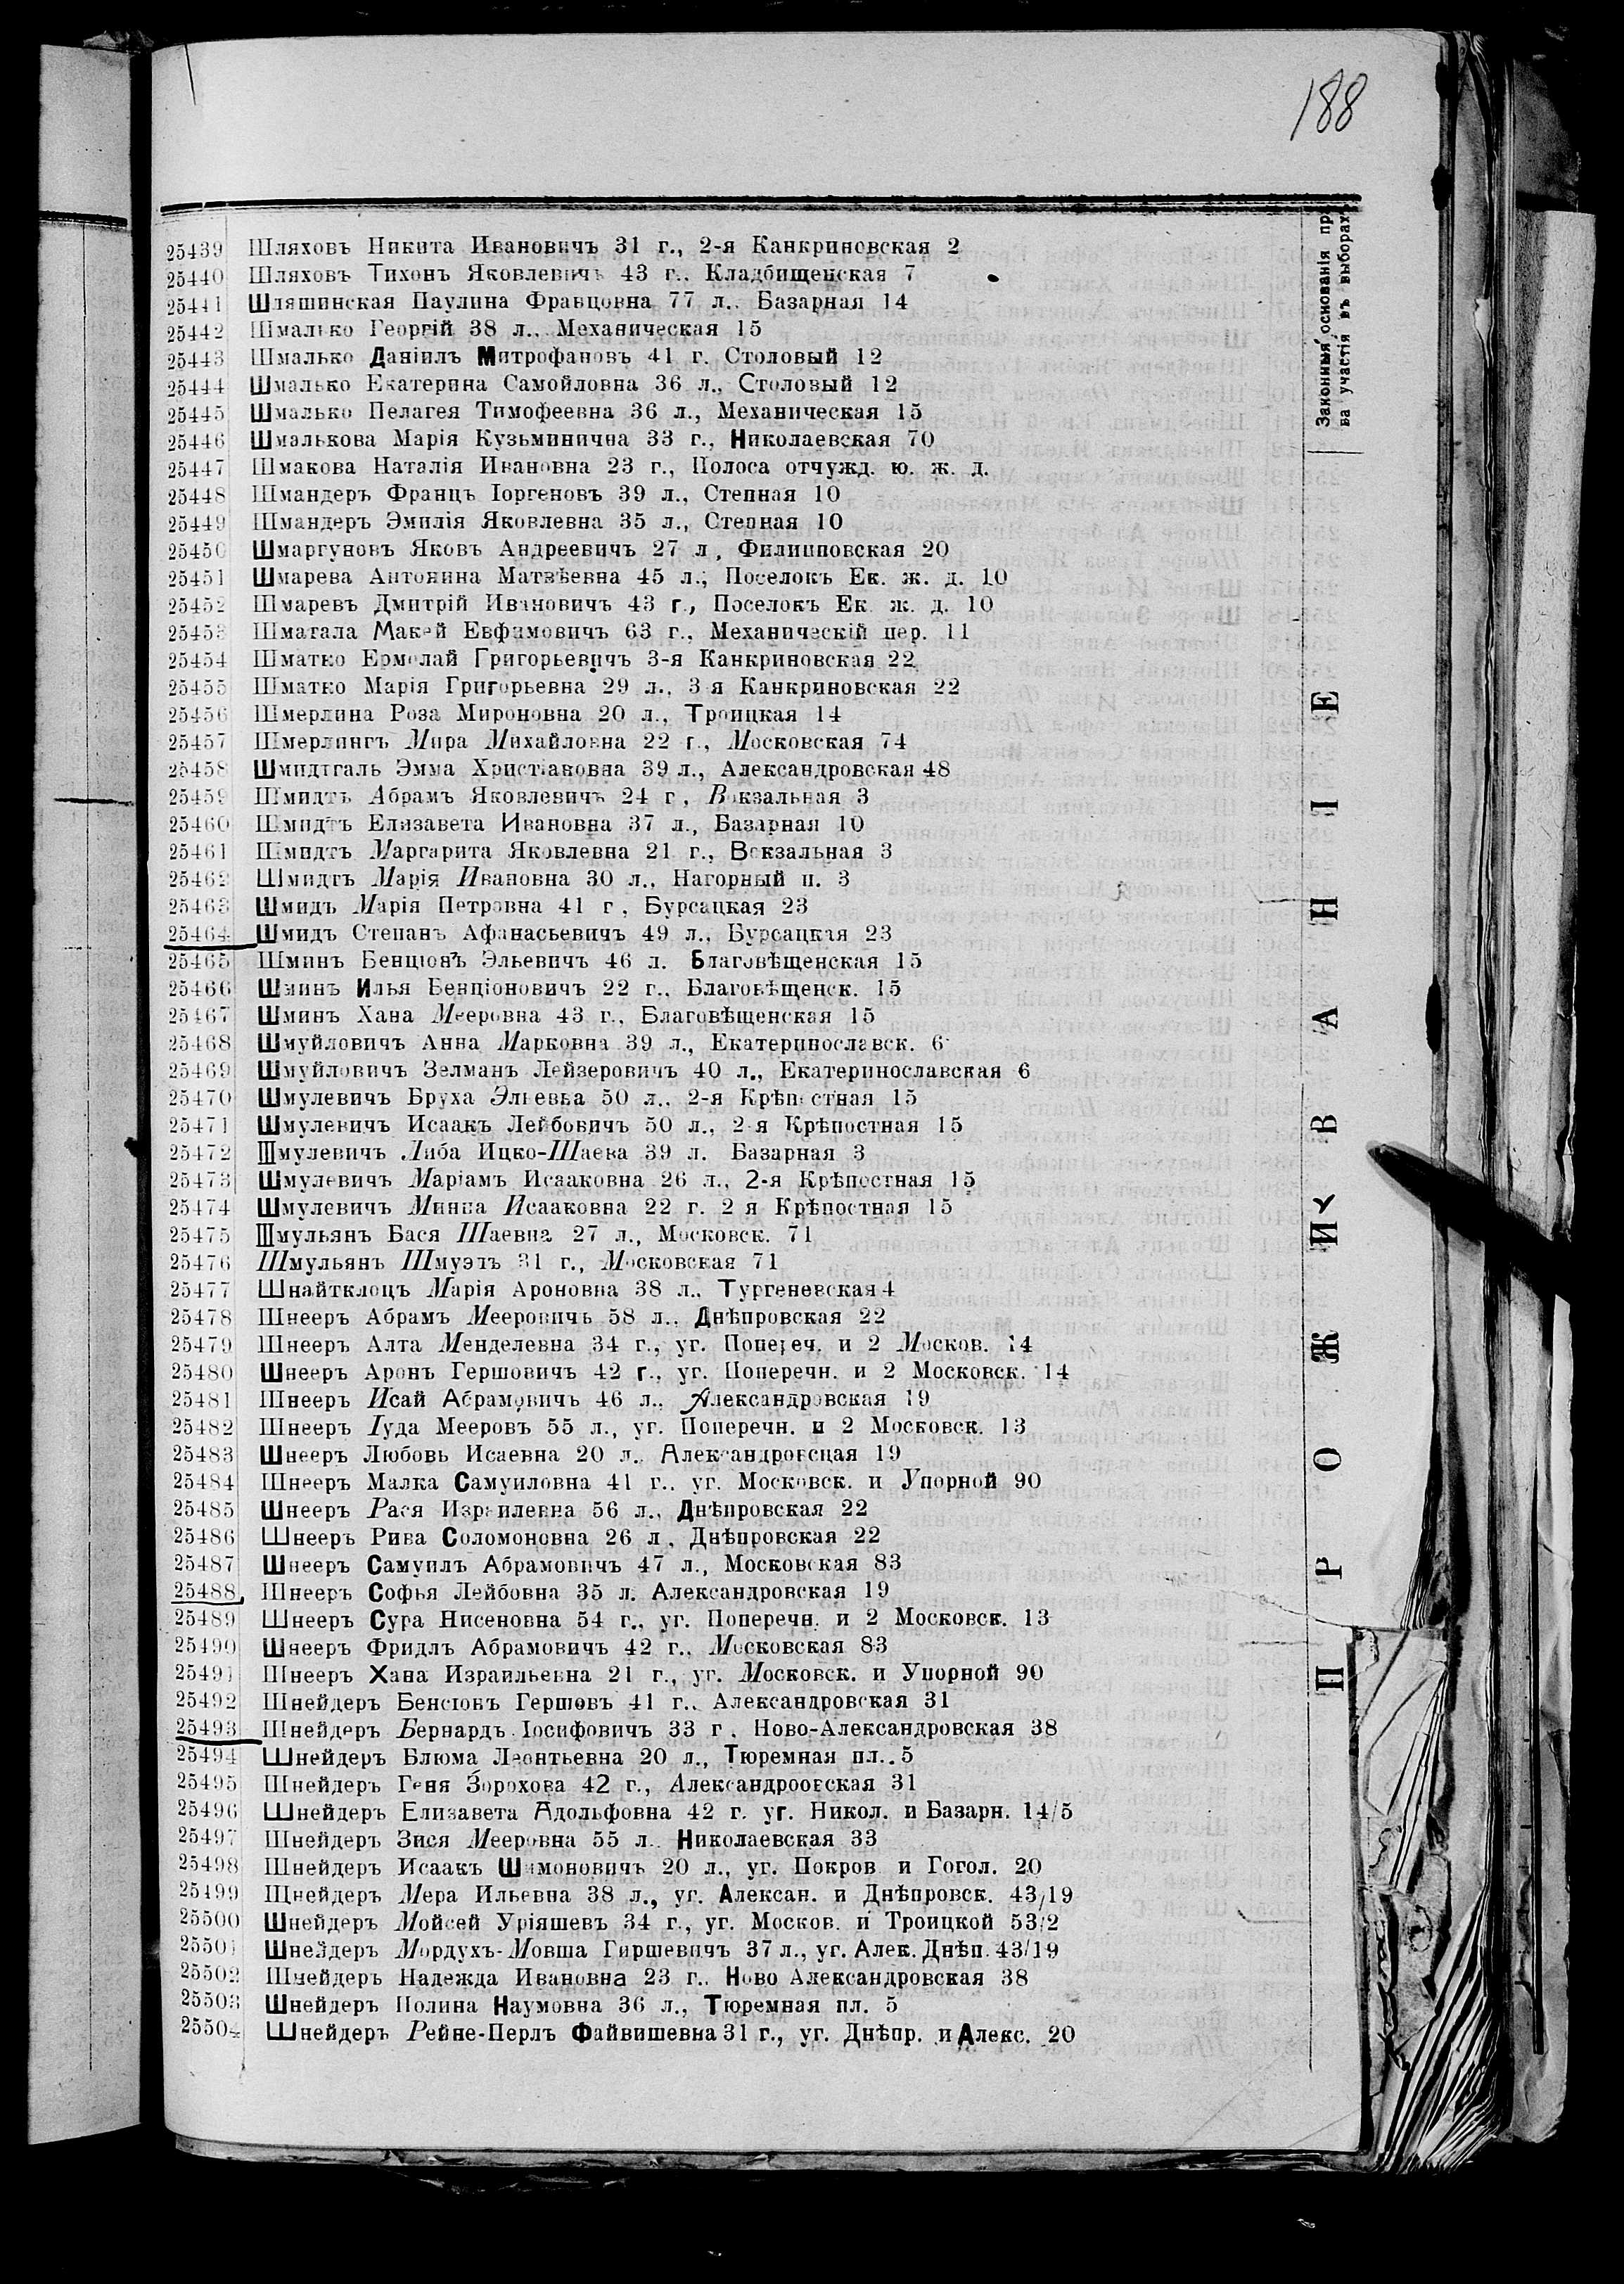 188
Законныя основанія пр
ва участія въ выборахъ
25439 Шляховъ Никита Ивановичъ 31 г., 2-я Канкриновская 2
25440 Шляховъ Тихонъ Яковлевичъ 43 г.. Кладбищенская 7
25441 Шляшинская Паулина Францовна 77 л.. Базарная 14
25442 Шмалько Георгій 38 л.. Механическая 15
25443 Шмалько Даніилъ Митрофановъ 41 г. Столовый 12
25444 Шмалько Екатерина Самойловна 36 л., Столовый 12
25445 Шмалько Пелагея Тимофеевна 36 л., Механическая 15
25446 Шмалькова Марія Кузьминична 33 г., Николаевская 70
25447 Шмакова Наталія Ивановна 23 г., Полоса отчужд. ю. ж. д.
25448 Шмандеръ Францъ Іоргеновъ 39 л., Степная 10
25449 Шмандеръ Эмилія Яковлевна 35 л., Степная 10
25450 Шмаргуновъ Яковъ Андреевичъ 27 л, Филипповская 20
25451 Шмарева Антонина Матвѣевна 45 л., Поселокъ Ек. ж. д. 10
25452 Шмаревъ Дмитрій Ивановичъ 43 г., Поселокъ Ек. ж. д. 10
25453 Шматала Макей Евфимовичъ 63 г., Механическій пер. 11
25454 Шматко Ермолай Григорьевичъ 3-я Канкриновская 22
25455 Шматко Марія Григорьевна 29 л., 3 я Канкриновская 22
25456 Шмерлина Роза Мироновна 20 л., Троицкая 14
25457 Шмерлингъ Мира Михайловна 22 г., Московская 74
25458 Шмидтгаль Эмма Христіановна 39 л., Александровская 48
25459 Шмидтъ Абрамъ Яковлевичъ 24 г, Вокзальная 3
25460 Шмидтъ Елизавета Ивановна 37 л., Базарная 10
25461 Шмидтъ Маргарита Яковлевна 21 г., Вокзальная 3
25462 Шмидтъ Марія Ивановна 30 л., Нагорный п. 3
25463 Шмидъ Марія Петровна 41 г, Бурсацкая 23
25464 Шмидъ Степанъ Афанасьевичъ 49 л., Бурсацкая 23
25465 Шминъ Бенціонъ Эльевичъ 46 л. Благовѣщенская 15
25466 Шминъ Илья Бенціоновичъ 22 г., Благовѣщенск. 15
25467 Шминъ Хана Мееровна 43 г., Благовѣщенская 15
25468 Шмуйловичъ Анна Марковна 39 л., Екатеринославск. 6
25469 Шмуйловичъ Зелманъ Лейзеровичъ 40 л., Екатеринославская 6
25470 Шмулевичъ Бруха Эльевьа 50 л., 2-я Крѣпостная 15
25471 Шмулевичъ Исаакъ Лейбовичъ 50 л., 2-я Крѣпостная 15
25472 Шмулевичъ Либа Ицко-Шаева 39 л. Базарная 3
25473 Шмулевичъ Маріамъ Исааковна 26 л., 2-я Крѣпостная 15
25474 Шмулевичъ Минна Исааковна 22 г. 2 я Крѣпостная 15
25475 Шмульянъ Бася Шаевна 27 л., Московск. 71
25476 Шмульянъ Шмуэлъ 31 г., Московская 71
25477 Шнайтклоцъ Марія Ароновна 38 л.. Тургеневская 4
25478 Шнееръ Абрамъ Мееровичъ 58 л.. Днѣпровская 22
25479 Шнееръ Алта Менделевна 34 г., уг. Попереч. и 2 Москов. 14
25480 Шнееръ Аронъ Гершовичъ 42 г., уг. Поперечн. и 2 Московск. 14
25481 Шнееръ Исай Абрамовичъ 46 л.. Александровская 19
25482 Шнееръ Іуда Мееровъ 55 л., уг. Поперечн. и 2 Московск. 13
25483 Шнееръ Любовь Исаевна 20 л.. Александровсцая 19
25484 Шнееръ Малка Самуиловна 41 г.. уг. Московск. и Упорной 90
25485 Шнееръ Рася Израилевна 56 л., Днѣпровская 22
25486 Шнееръ Рива Соломоновна 26 л, Днѣпровская 22
25487 Шнееръ Самуилъ Абрамовичъ 47 л., Московская 83
25488 Шнееръ Софья Лейбовна 35 л. Александровская 19
25489 Шнееръ Сура Нисеновна 54 г., уг. Поперечн. и 2 Московск. 13
25490 Шнееръ Фридлъ Абрамовичъ 42 г., Московская 83
25491 Шнееръ Хана Израильевна 21 г., уг. Московск. и Упорной 90
25492 Шнейдеръ Бенсіонъ Гершовъ 41 г., Александровская 31
25493 Шнейдеръ Бернардъ Іосифовичъ 33 г. Ново-Александровская 38
25494 Шнейдеръ Блюма Леонтьевна 20 л., Тюремная пл.. 5
25495 Шнейдеръ Геня Зорохова 42 г., Александроовская 31
25496 Шнейдеръ Елизавета Адольфовна 42 г. уг. Никол. и Базарн. 14/5
25497 Шнейдеръ Зися Мееровна 55 л.. Николаевская 33
25498 Шнейдеръ Исаакъ Шимоновичъ 20 л., уг. Покров и Гогол. 20
25499 Шнейдеръ Мера Ильевна 38 л., уг. Алексан. и Днѣпровск. 43/19
25500 Шнейдеръ Мойсей Уріяшевъ 34 г., уг. Москов. и Троицкой 53/2
25501 Шнейдеръ Мордухъ-Мовша Гиршевичъ 37 л., уг. Алек. Днѣп. 43/19
25502 Шнейдеръ Надежда Ивановна 23 г.. Ново Александровская 38
25503 Шнейдеръ Полина Наумовна 36 л., Тюремная пл. 5
25504 Шнейдеръ Рейне-Перлъ Файвишевна 31 г., уг. Днѣпр. и Алекс. 20
ПРОЖИВАНІЕ